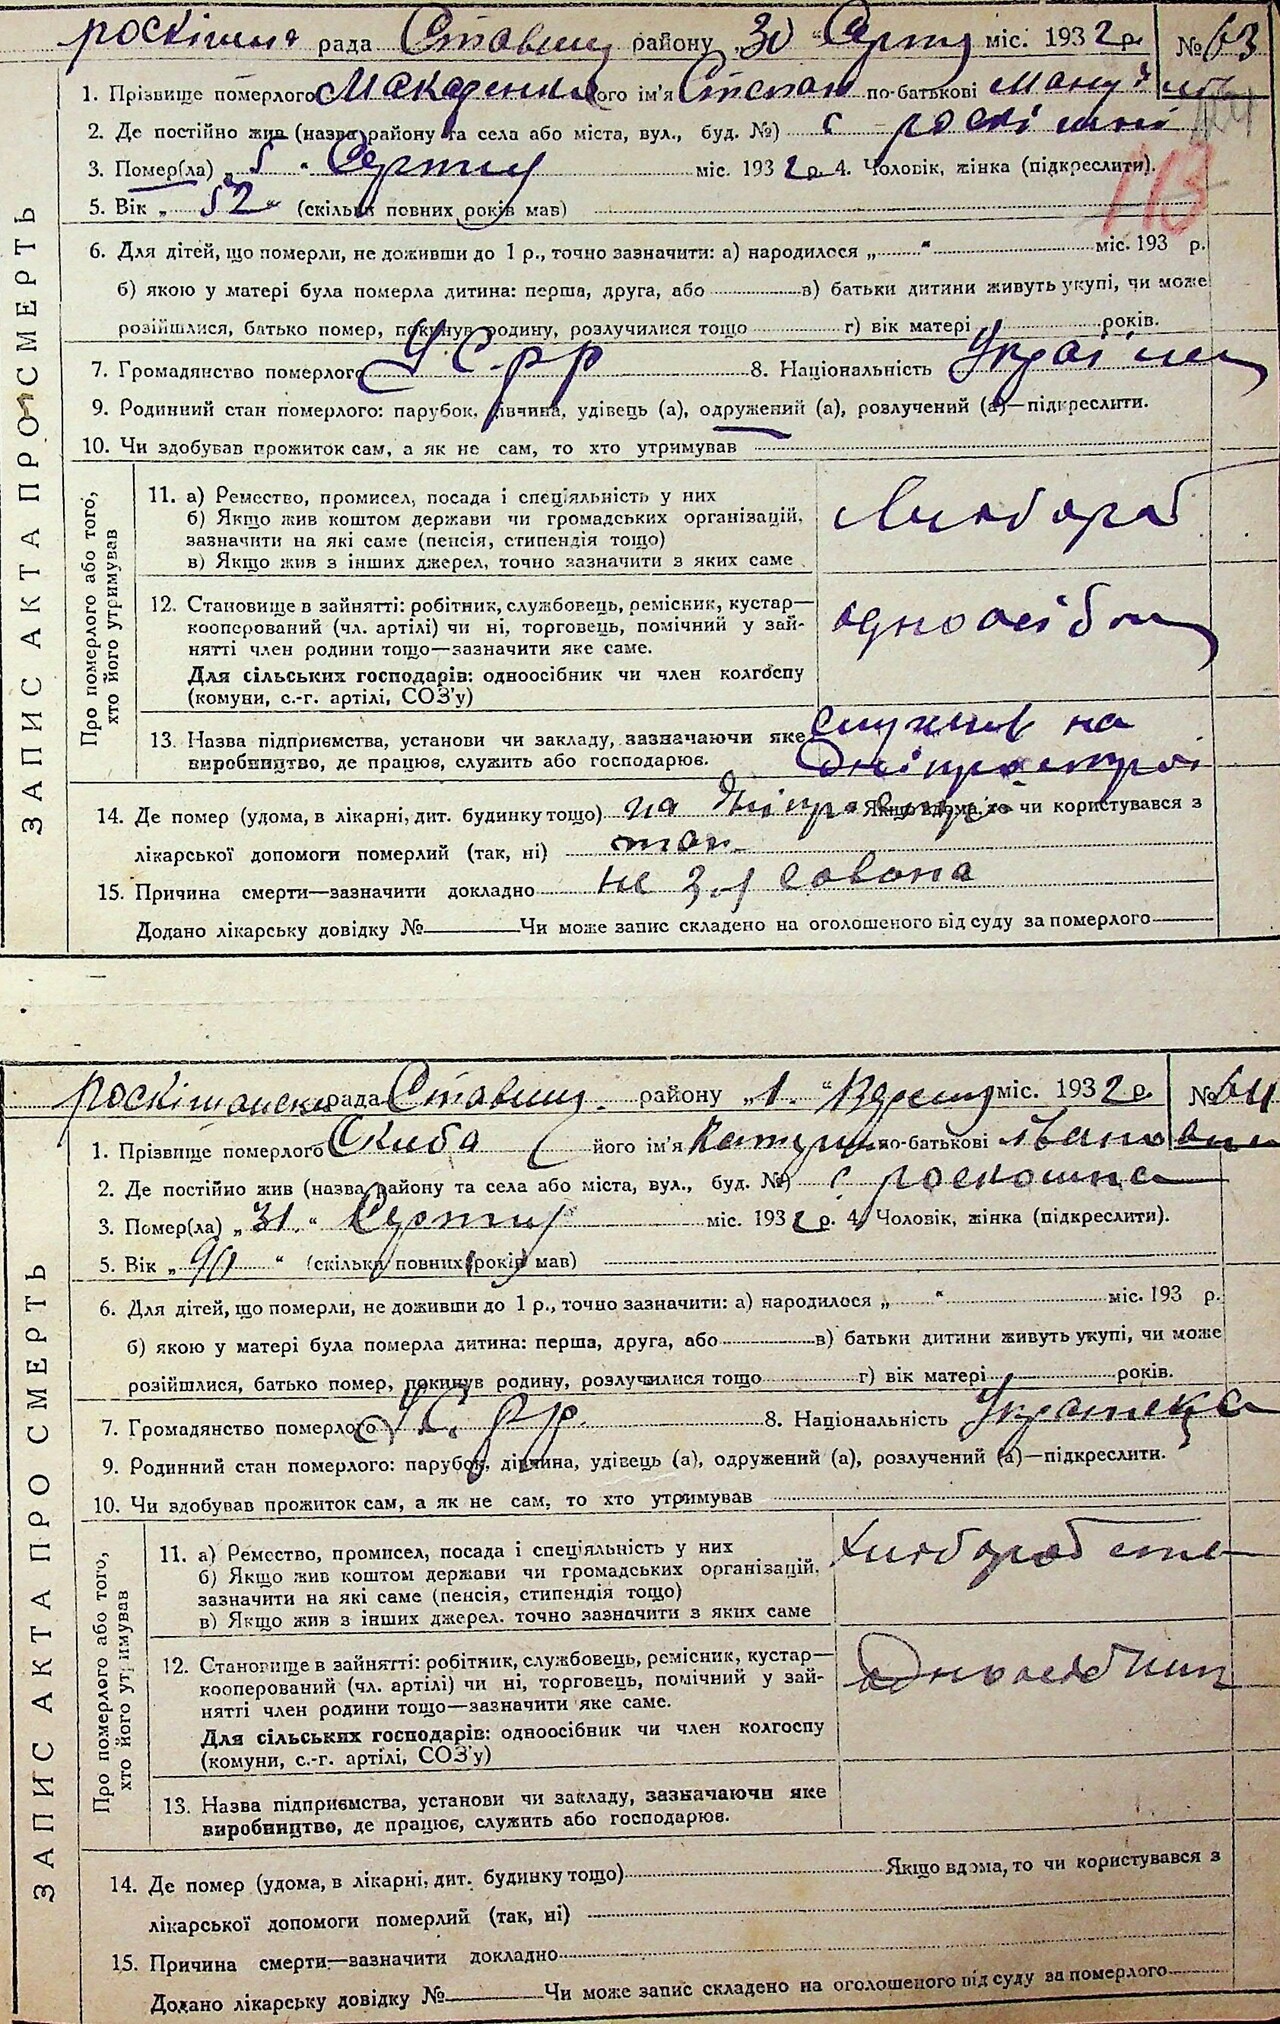 ЗАПИС АКТА ПРО СМЕРТЬ
рада Ставищ району „30“ Серпн міс. 1932 р. № 63
1. Прізвище померлого Македенко його ім'я Степан по-батькові
2. Де постійно жив (назва району та села або міста, вул., буд. №) с
113
3. Помер(ла) „5“ Серпня міс. 1932 р. 4. Чоловік, жінка (підкреслити).
5. Вік „52“ (скільки повних років мав)
6. Для дітей, що померли, не доживши до 1 р., точно зазначити: а) народилося „ “ міс. 193 р.
б) якою у матері була померла дитина: перша, друга, або в) батьки дитини живуть укупі, чи може
розійшлися, батько помер, покинув родину, розлучилися тощо г) вік матері років.
7. Громадянство померлого УСРР 8. Національність Українец
9. Родинний стан померлого: парубок, дівчина, удівець (а), одружений (а), розлучений (а)—підкреслити.
10. Чи здобував прожиток сам, а як не сам, то хто утримував
Про померлого або того,
хто його утримував
11. а) Ремество, промисел, посада і спеціяльність у них
б) Якщо жив коштом держави чи громадських організацій,
зазначити на які саме (пенсія, стипендія тощо)
в) Якщо жив з інших джерел, точно зазначити з яких саме
Хлебораб
12. Становище в зайнятті: робітник, службовець, ремісник, кустар—
кооперований (чл. артілі) чи ні, торговець, помічний у зай-
нятті член родини тощо—зазначити яке саме.
Для сільських господарів: одноосібник чи член колгоспу
(комуни, с.-г. артілі, СОЗ'у)
одноосібн
13. Назва підприємства, установи чи закладу, зазначаючи яке
виробництво, де працює, служить або господарює.
служив на
Дніпрострої
14. Де помер (удома, в лікарні, дит. будинку тощо) на Дніпрострої Якщо вдома, то чи користувався з
лікарської допомоги померлий (так, ні) так
15. Причина смерти—зазначити докладно не
Додано лікарську довідку № Чи може запис складено на оголошеного від суду за померлого
ЗАПИС АКТА ПРО СМЕРТЬ
рада Ставищ. району „1.“ Вересня міс. 1932 р. № 64
1. Прізвище померлого Скиба його ім'я Катерина по-батькові Івановна
2. Де постійно жив (назва району та села або міста, вул., буд. №) с роскошна
3. Помер(ла) „31.“ Серпня міс. 1932 р. 4. Чоловік, жінка (підкреслити).
5. Вік „ “ (скільки повних років мав)
6. Для дітей, що померли, не доживши до 1 р., точно зазначити: а) народилося „ “ міс. 193 р.
б) якою у матері була померла дитина: перша, друга, або в) батьки дитини живуть укупі, чи може
розійшлися, батько помер, покинув родину, розлучилися тощо г) вік матері років.
7. Громадянство померлого УСРР. 8. Національність Українка
9. Родинний стан померлого: парубок, дівчина, удівець (а), одружений (а), розлучений (а)—підкреслити.
10. Чи здобував прожиток сам, а як не сам, то хто утримував
Про померлого або того,
хто його утримував
11. а) Ремество, промисел, посада і спеціяльність у них
б) Якщо жив коштом держави чи громадських організацій,
зазначити на які саме (пенсія, стипендія тощо)
в) Якщо жив з інших джерел. точно зазначити з яких саме
12. Становище в зайнятті: робітник, службовець, ремісник, кустар—
кооперований (чл. артілі) чи ні, торговець, помічний у зай-
нятті член родини тощо—зазначити яке саме.
Для сільських господарів: одноосібник чи член колгоспу
(комуни, с.-г. артілі, СОЗ'у)
одноосібник
13. Назва підприємства, установи чи закладу, зазначаючи яке
виробництво, де працює, служить або господарює.
14. Де помер (удома, в лікарні, дит. будинку тощо) Якщо вдома, то чи користувався з
лікарської допомоги померлий (так, ні)
15. Причина смерти—зазначити докладно
Додано лікарську довідку № Чи може запис складено на оголошеного від суду за померлого